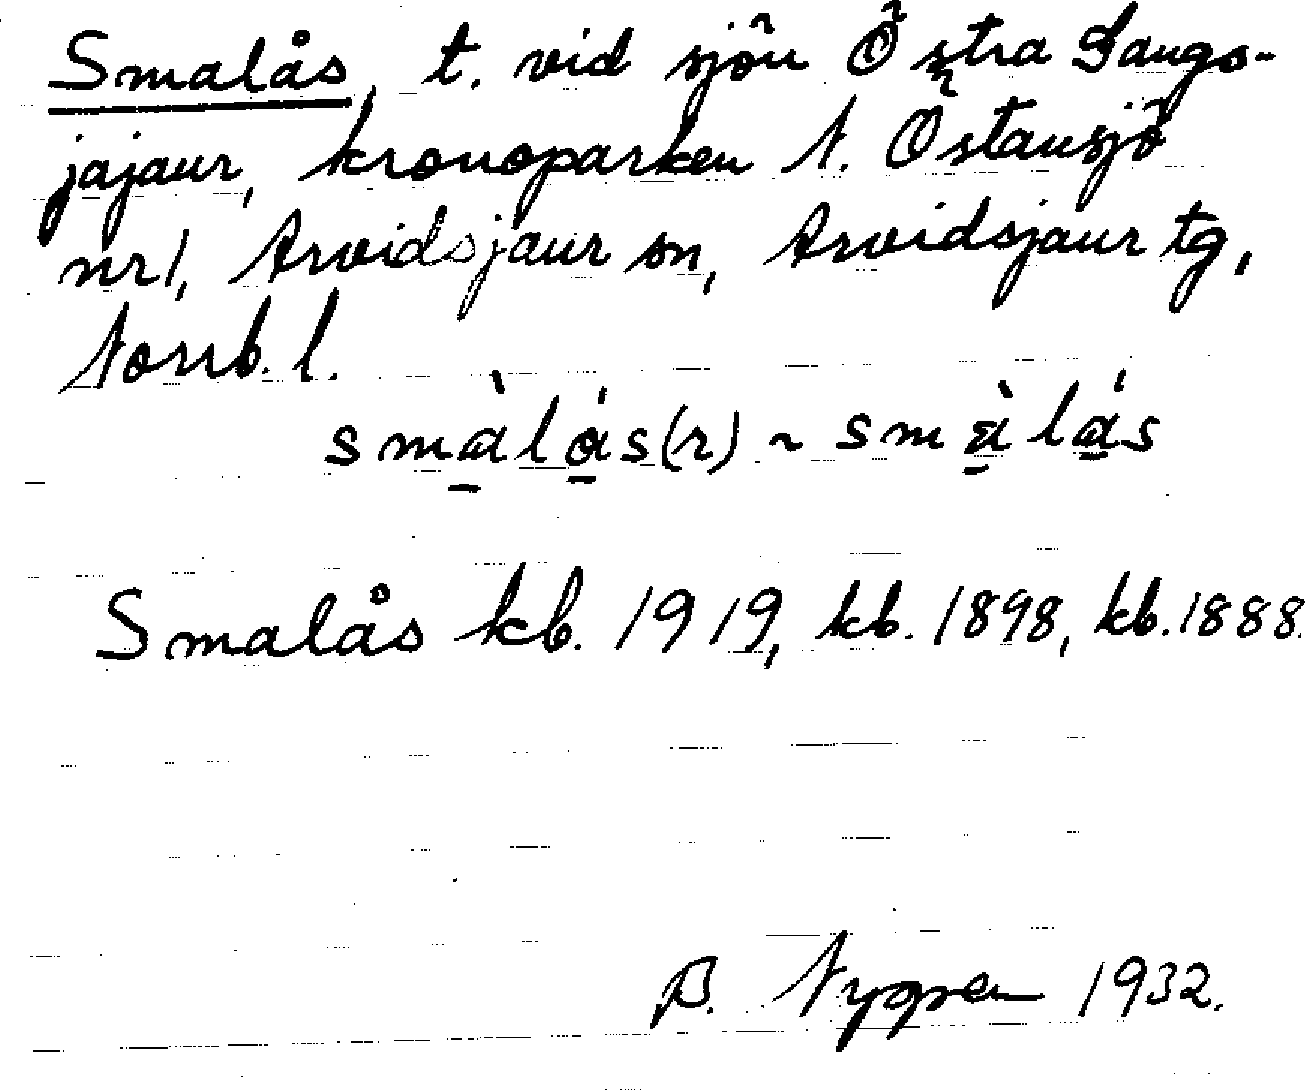 Smalås, t. vid sjön Östra Lango-
jajaur, kronoparken N. Östansjö
nr 1, Arvidsjaur sn, Arvidsjaur tg,
Norrb. l.
smàlás(r) ~ smàlás
Smalås kb. 1919, kb. 1898, kb. 1888.
B. Nygren 1932.